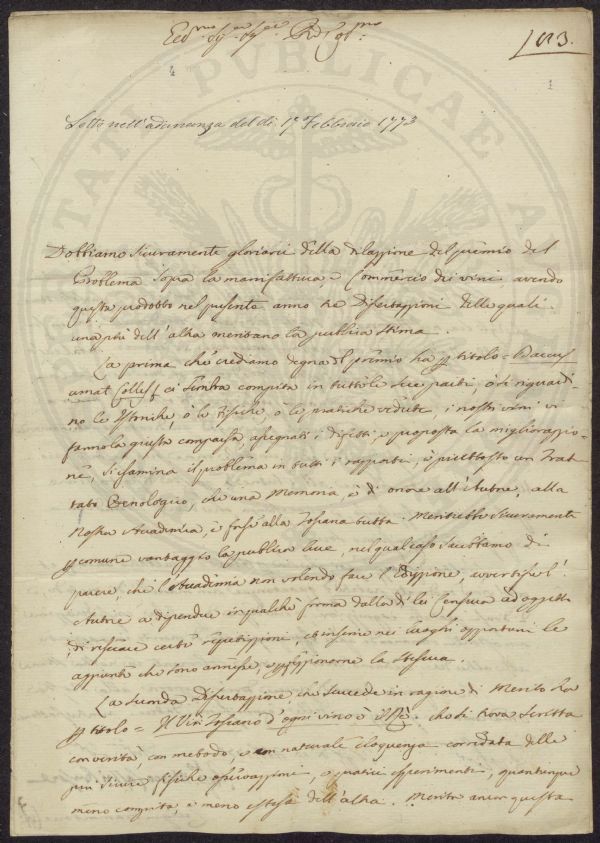 183.
Letto nell'adunanza del dì 17 Febbraio 1773
Dobbiamo sicuramente gloriarci della dilazzione del premio del
Problema sopra la manifattura, e Commercio dei vini avendo
questa prodotto nel presente anno tre Dissertazioni delle quali
una più dell'altra meritano la pubblica stima.
La prima che crediamo degna del premio ha per titolo = Baccus
amat Colles ci sembra compita in tutte le sue parti, o si riguardi-
no le Istoriche, o le fisiche, o le pratiche vedute, i nostri vini vi
fanno la giusta comparsa, assegnati i difetti, e proposta la migliorazzio-
ne, si esamina il problema in tutti i rapporti, e piuttosto un Trat-
tato Oenologico, che una Memoria, è di onore all'Autore, alla
Nostra Accademia, e forse alla Toscana tutta. Meriterebbe sicuramente
per comune vantaggio la pubblica luce, nel qual caso saressamo di
parere, che l'Accademia non volendo fare l'Edizzione, avvertisse l'
Autore a dipendere in qualche forma dalla di lei Censura ad oggetto
di resecare certe repetizzioni, ed inserire nei luoghi opportuni le
aggiunte che sono annesse, e perfezzionarne la stesura.
La seconda Dissertazzione che succede in ragione di Merito ha
per titolo = Il Vin Toscano d'ogni vino è il Re. che si trova scritta
con verità, con metodo, e con naturale Eloquenza corredata delle
più sicure fisiche osservazzioni, e pratici esperimenti, quantunque
meno compita, e meno estesa dell'altra. Merita ancor questa